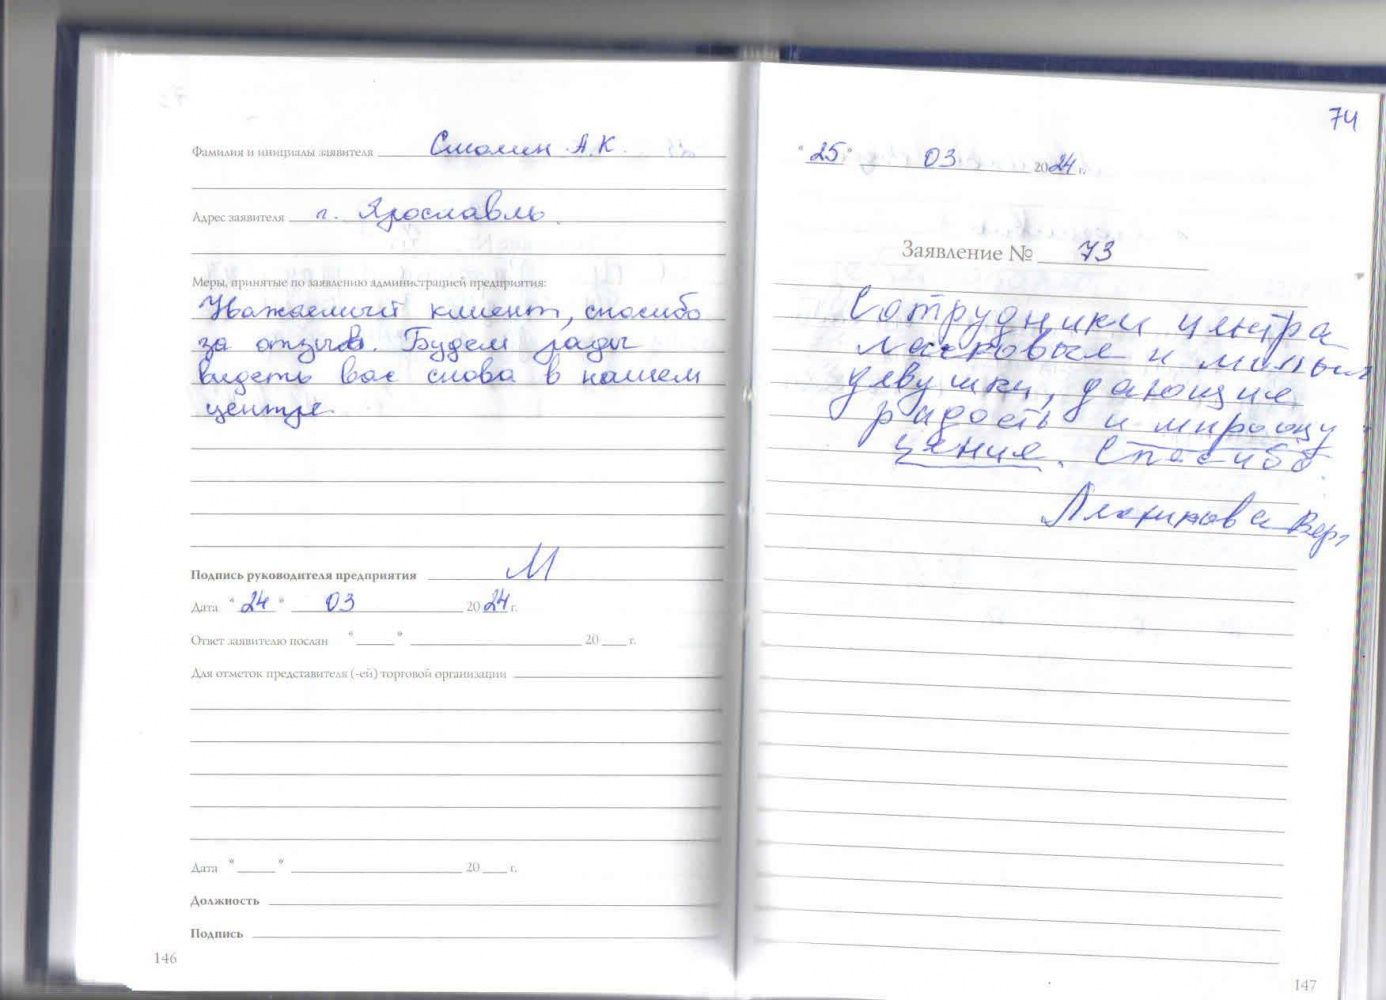 Фамилия и инициалы заявителя Смолин А.К.
Адрес заявителя г. Ярославль.
Меры, принятые по заявлению администрацией предприятия:
Уважаемый клиент, спасибо
за отзыв. Будем рады
видеть вас снова в нашем
центре.
Подпись руководителя предприятия
Дата "24" 03 2024 г.
Ответ заявителю послан " " 20 г.
Для отметок представителя (-ей) торговой организации
Дата " " 20 г.
Должность
Подпись
146
74
"25" 03 2024 г.
Заявление № 73
Сотрудники центра
ласковые и милые
девушки, дающие
радость и мироощу-
щения. Спасибо.
147